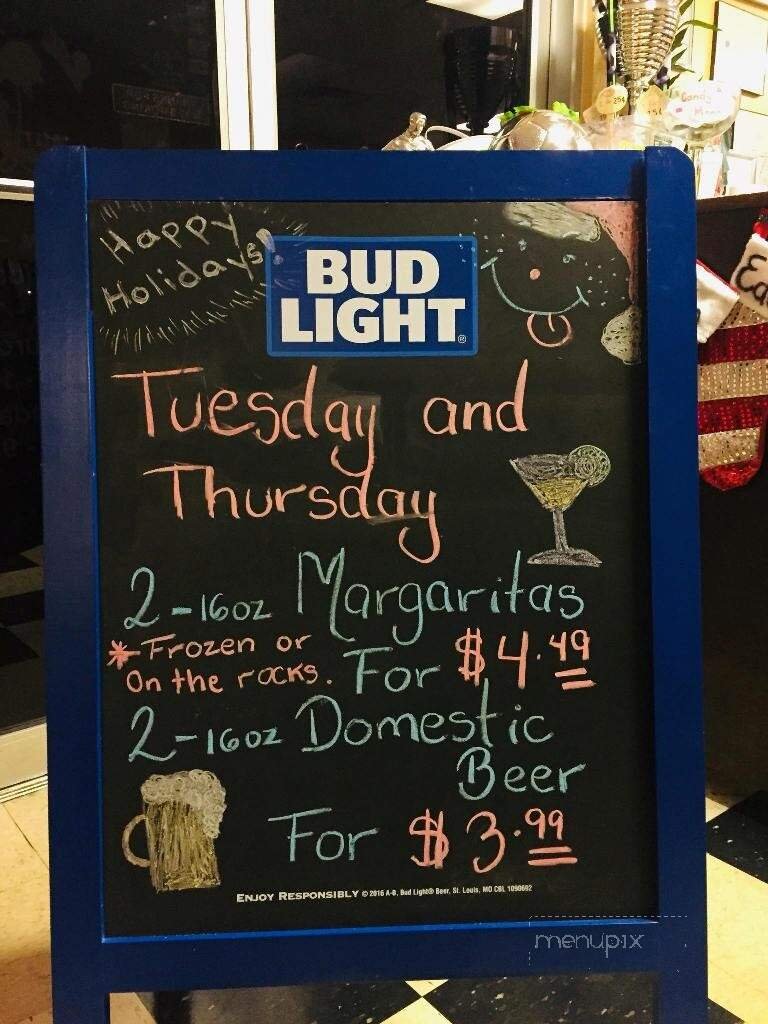 Happy
Holidays!
BUD
LIGHT®
Tuesday and
Thursday
2-16oz Margaritas
*Frozen or
On the rocks. For $4.49
2-16oz Domestic
Beer
For $3.99
ENJOY RESPONSIBLY © 2016 A-B, Bud Light® Beer, St. Louis, MO CBL 1090692
menupix
25¢
Candy